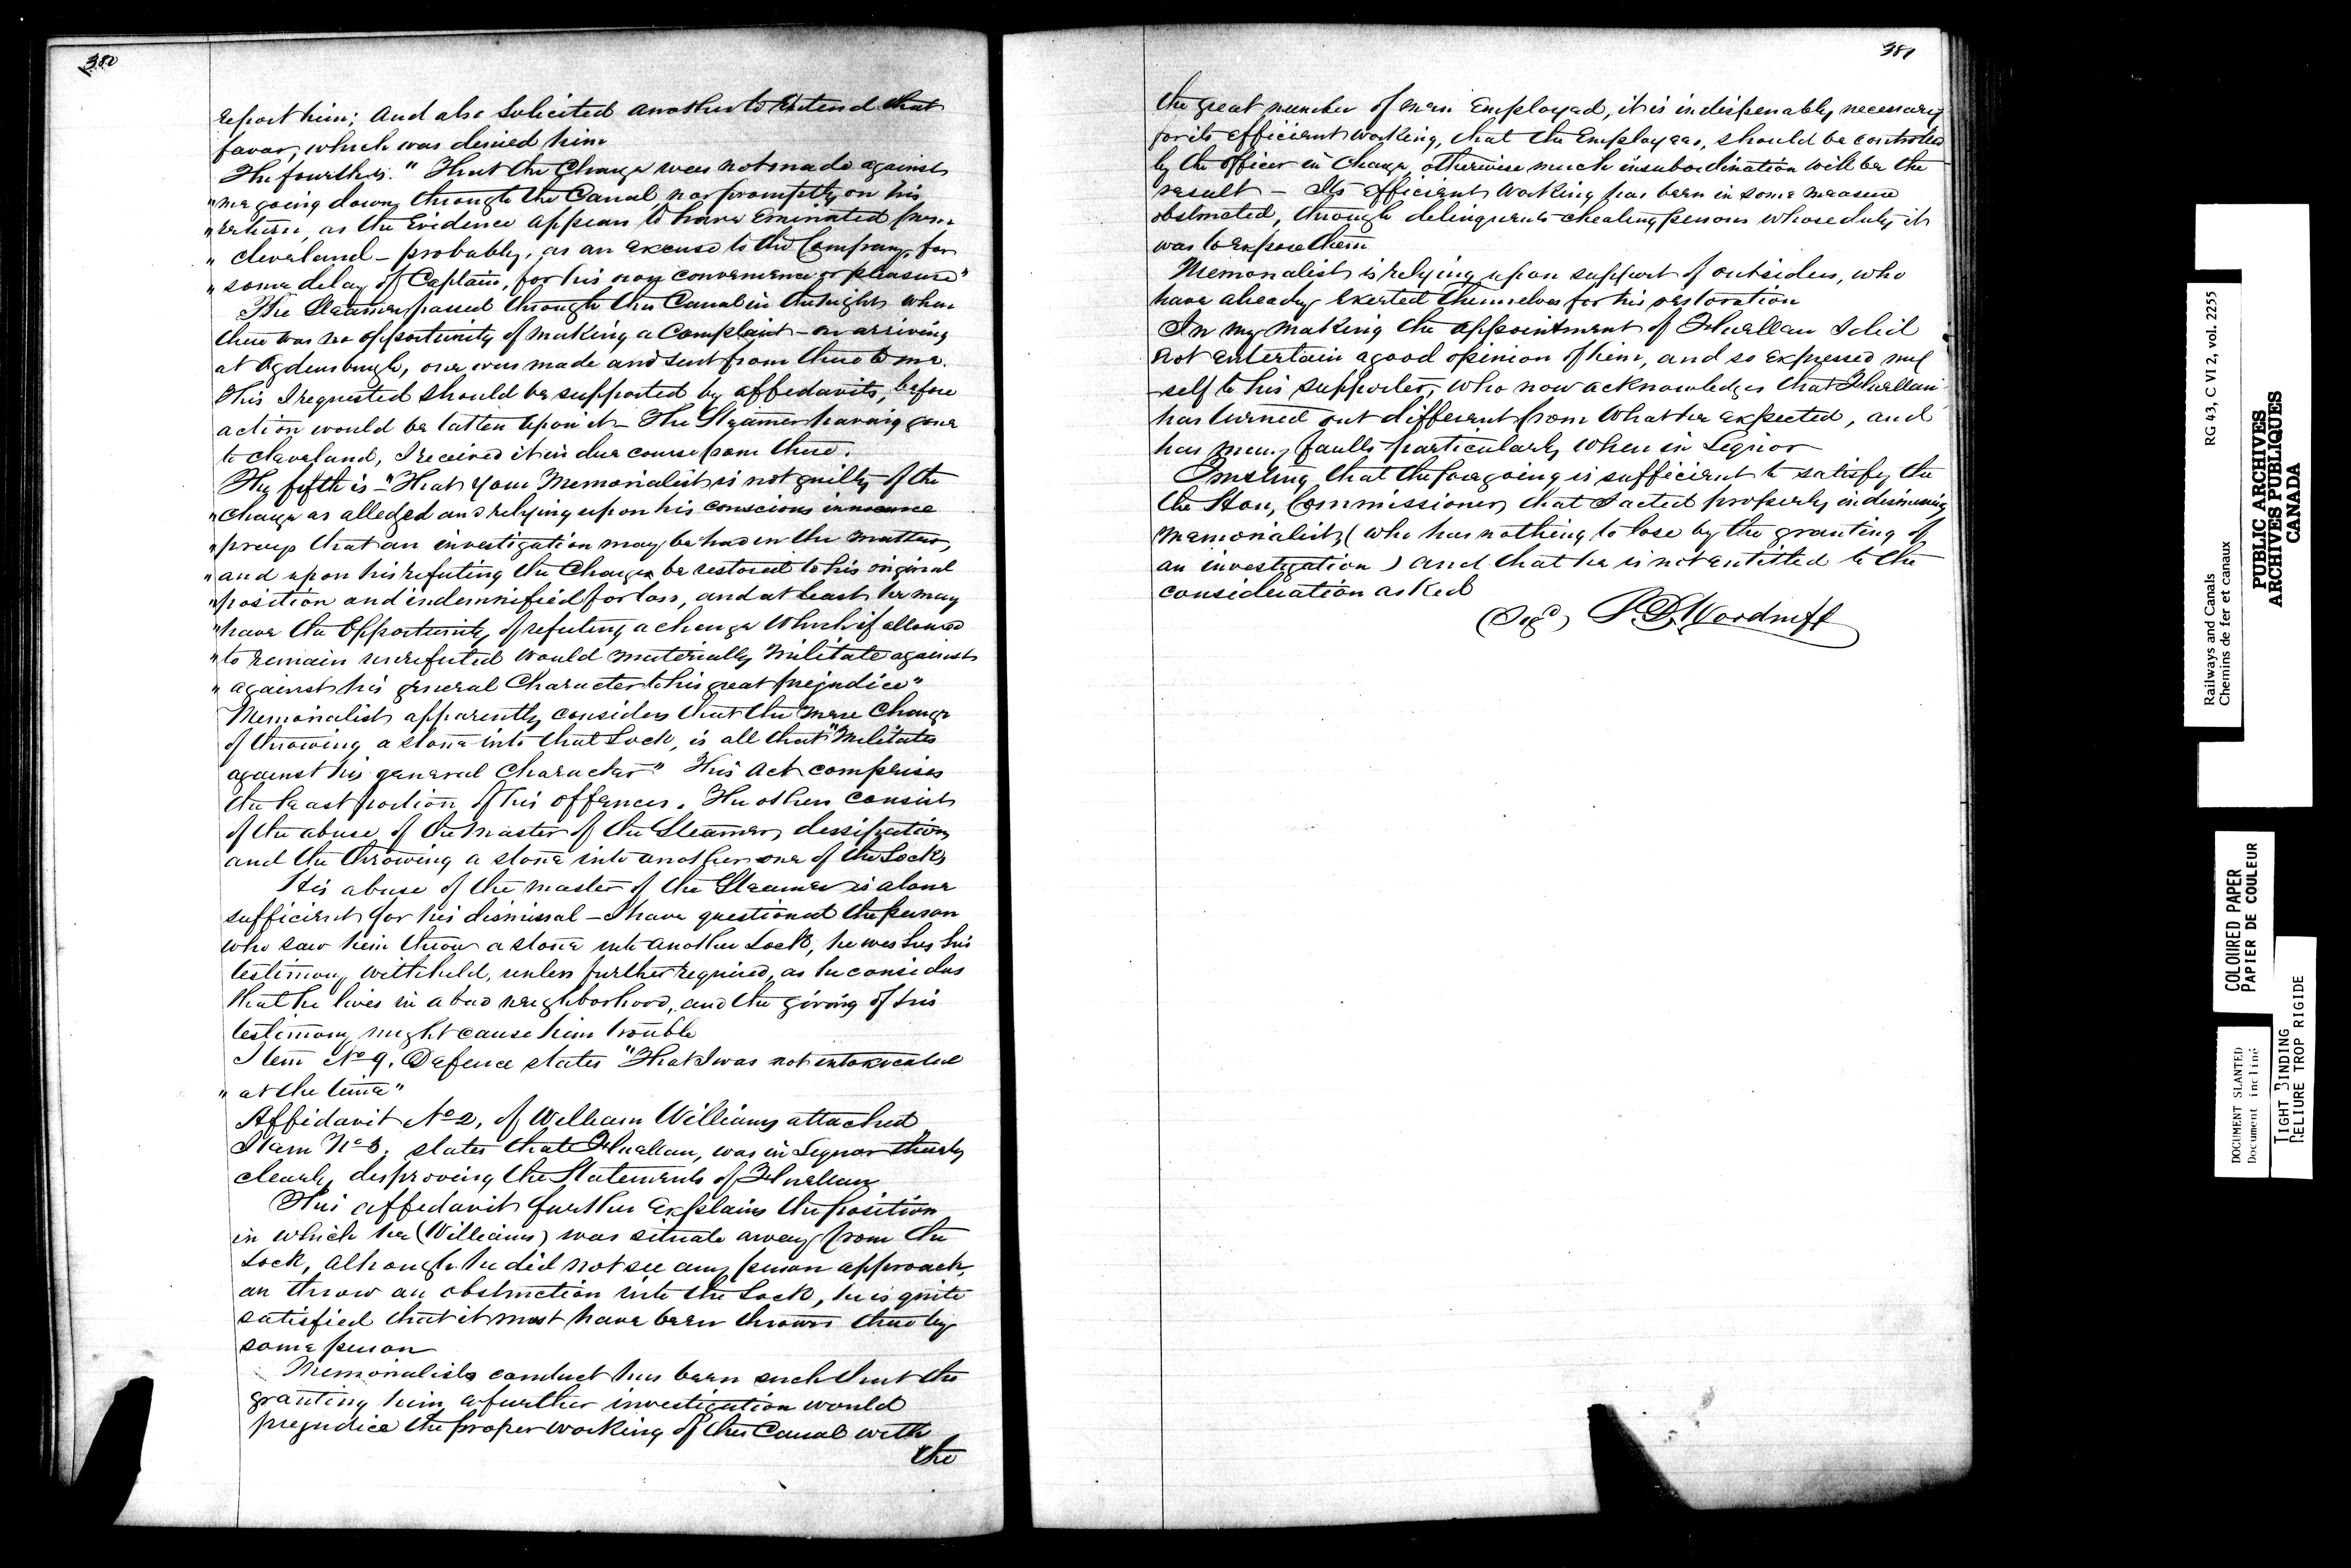 380
report him; And also Solicited another to Extend that
favor, which was denied him
The fourth is. "That the Charge was not made against
"me going down through the Canal, nor promptly on his
"return, as the Evidence appears to have Eminated from
"Cleveland – probably, as an excuse to the Company, for
"some delay of Captain, for his own convenience or pleasure"
The Steamer passed through the Canal in the night when
there was no opportunity of making a Complaint – on arriving
at Ogdensburgh, one was made and sent from there to me.
This I requested should be supported by affidavits, before
action would be taken upon it – The Steamer having gone
to Cleveland, I received it in due course from there.
The fifth is – "That your Memorialist is not guilty of the
"Charge as alleged and relying upon his conscious innocence
"prays that an investigation may be had in the matter,
"and upon his refuting the Charge be restored to his original
"position and indemnified for loss, and at least he may
"have the Opportunity of refuting a charge which if allowed
"to remain unrefuted would materially militate against
"against his general Character to his great prejudice"
Memorialist apparently considers that the mere Charge
of throwing a stone into that Lock, is all that "Militates
against his general Character" This Act comprises
the least portion of his offences. The others consist
of the abuse of the Master of the Steamer, dissipation
and the throwing a stone into another one of the Locks
His abuse of the master of the Steamer is alone
sufficient for his dismissal – I have questioned the person
who saw him throw a stone into another Lock, he wishes his
testimony withheld, unless further required, as he considers
that he lives in a bad neighborhood, and the giving of his
testimony might cause him trouble
Item No 9. Defence states "That I was not intoxicated
"at the time"
Affidavit No 2, of William Williams attached
Item No 3. states that Fluellan, was in Liquor thereby
clearly disproving the Statements of Fluellan
This affidavit further Explains the position
in which he (Williams) was situate away from the
Lock, although he did not see any person approach,
an throw an obstruction into the Lock, he is quite
satisfied that it must have been thrown there by
some person
Memorialists conduct has been such that the
granting him a further investigation would
prejudice the proper working of the Canal with
the
381
the great number of men Employed, it is indispensably necessary
for its efficient working, that the Employees, should be controlled
by the officer in Charge, otherwise much insubordination will be the
result – Its Efficient Working has been in some measure
obstructed, through delinquents cheating persons whose duty it
was to expose them
Memorialist is relying upon support of outsiders, who
have already Exerted themselves for his restoration
In my making the appointment of Fluellan I did
not entertain a good opinion of him, and so Expressed my
self to his supporter, who now acknowledges that Fluellan
has turned out different from what he expected, and
has many faults particularly when in Liquor
Trusting that the foregoing is sufficient to satisfy the
the Hon, Commissioner, that I acted properly in dismissing
Memorialist, (who has nothing to lose by the granting of
an investigation) and that he is not entitled to the
consideration asked
(Sigd) S. D. Woodruff
RG 43, C VI 2, vol. 2255
Railways and Canals
Chemins de fer et canaux
PUBLIC ARCHIVES
ARCHIVES PUBLIQUES
CANADA
COLOURED PAPER
PAPIER DE COULEUR
DOCUMENT SLANTED
Document incliné
TIGHT BINDING
RELIURE TROP RIGIDE